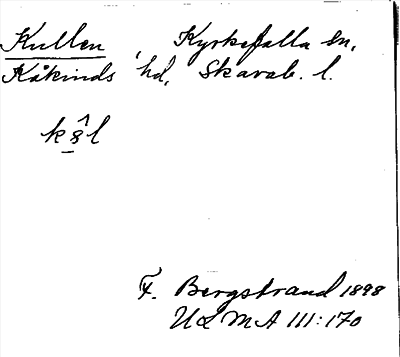 Kullen, Kyrkefalla sn,
Kåkinds hd, Skarab. l.
F. Bergstrand 1898
ULMA 111:170